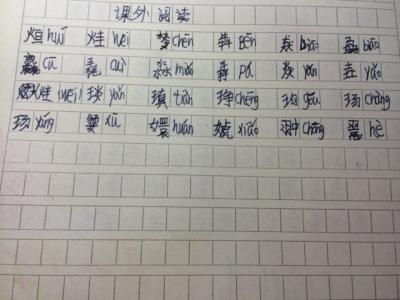 课外阅读
烜huǐ 烓wei 棽chēn 犇Bēn 猋biāo biāo
cū 毳cuì 淼miǎo pā 焱yàn 垚yáo
烓(wēi) 琰yǎn 瑱tiàn 琤chēng 玽gǒu 玚chàng
玚yáng 媭xū 嬛huán xiāo 翀chōng 翯hè